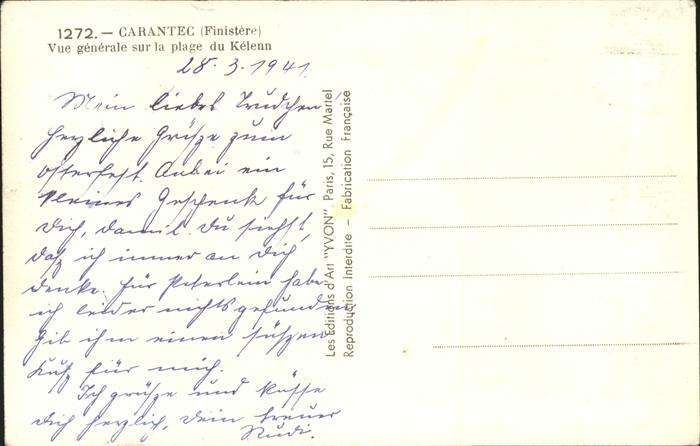 1272.— CARANTEC (Finistère)
Vue générale sur la plage du Kélenn
28.3.1941.
Mein liebes Trudchen
Herzliche Grüsze zum
Osterfest. Anbei ein
kleines Geschenk für
Dich, damit Du siehst,
dasz ich immer an Dich
denke. Für Peterlein habe
ich leider nichts gefunden
Gib ihm einen süszen
Kusz für mich.
Ich grüsze und küsse
Dich herzlich, Dein treuer
Rudi.
Les Editions d'Art "YVON", Paris, 15, Rue Martel
Reproduction Interdite – Fabrication Française